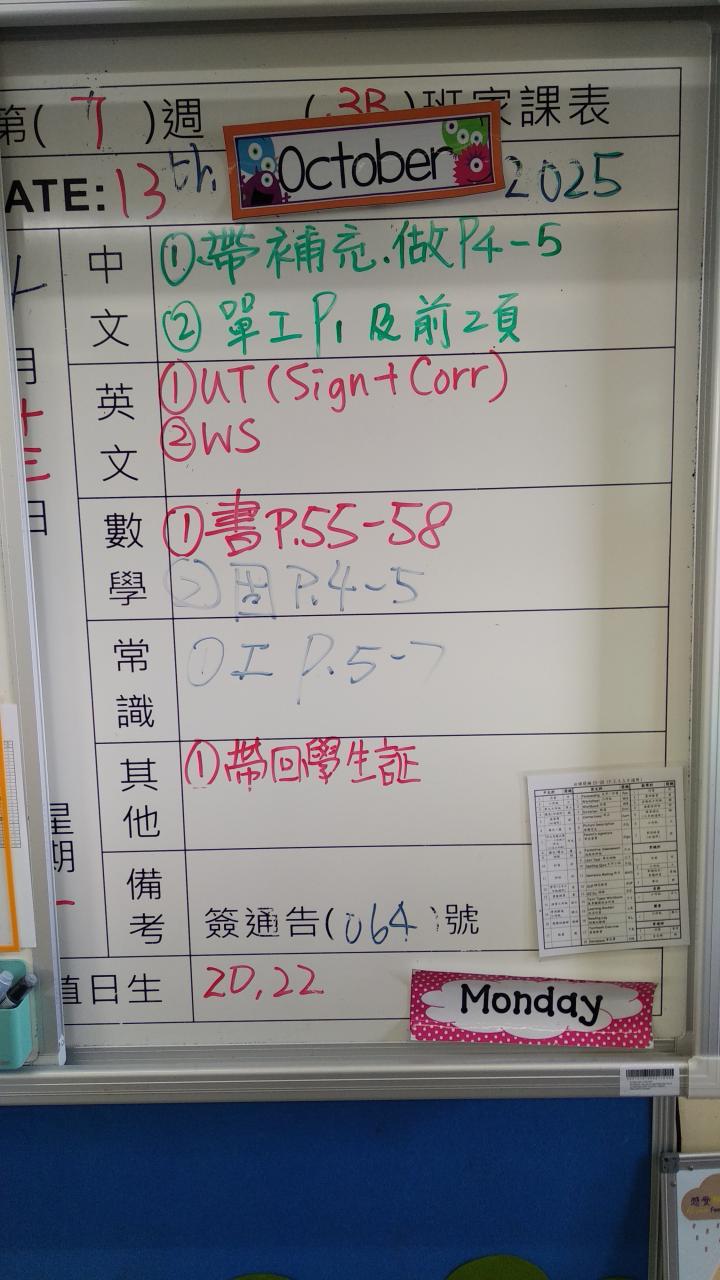 第(7)週 (3B)班家課表
ATE: 13th October 2025
中文 ①帶補充.做P4-5
②單工P1及前2頁
英文 ①UT(Sign+Corr)
②WS
數學 ①書P.55-58
②固P.4-5
常識 ①工P.5-7
其他 ①帶回學生証
備考 簽通告(064)號
月十三日
星期一
值日生 20,22
Monday